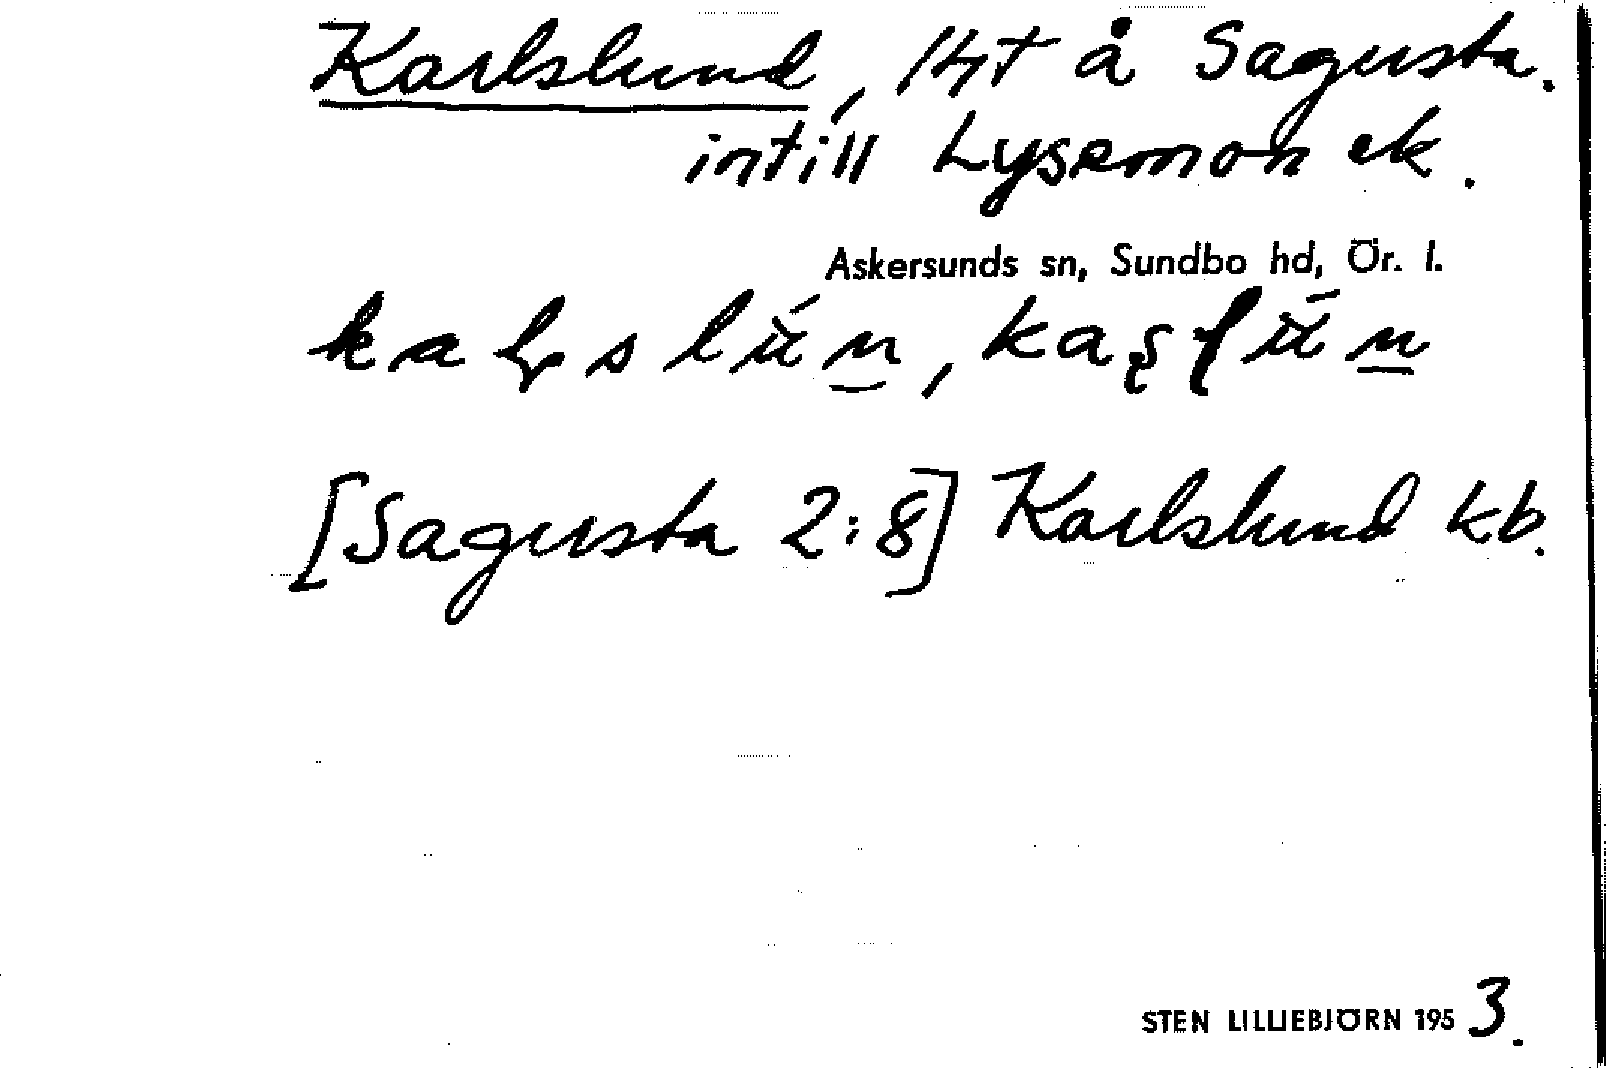 Karlslund, lht å Sagusta.
intill Lysemon ek.
Askersunds sn, Sundbo hd, Ör. l.
[Sagusta 2:8] Karlslund kb.
STEN LILLIEBJÖRN 1953.